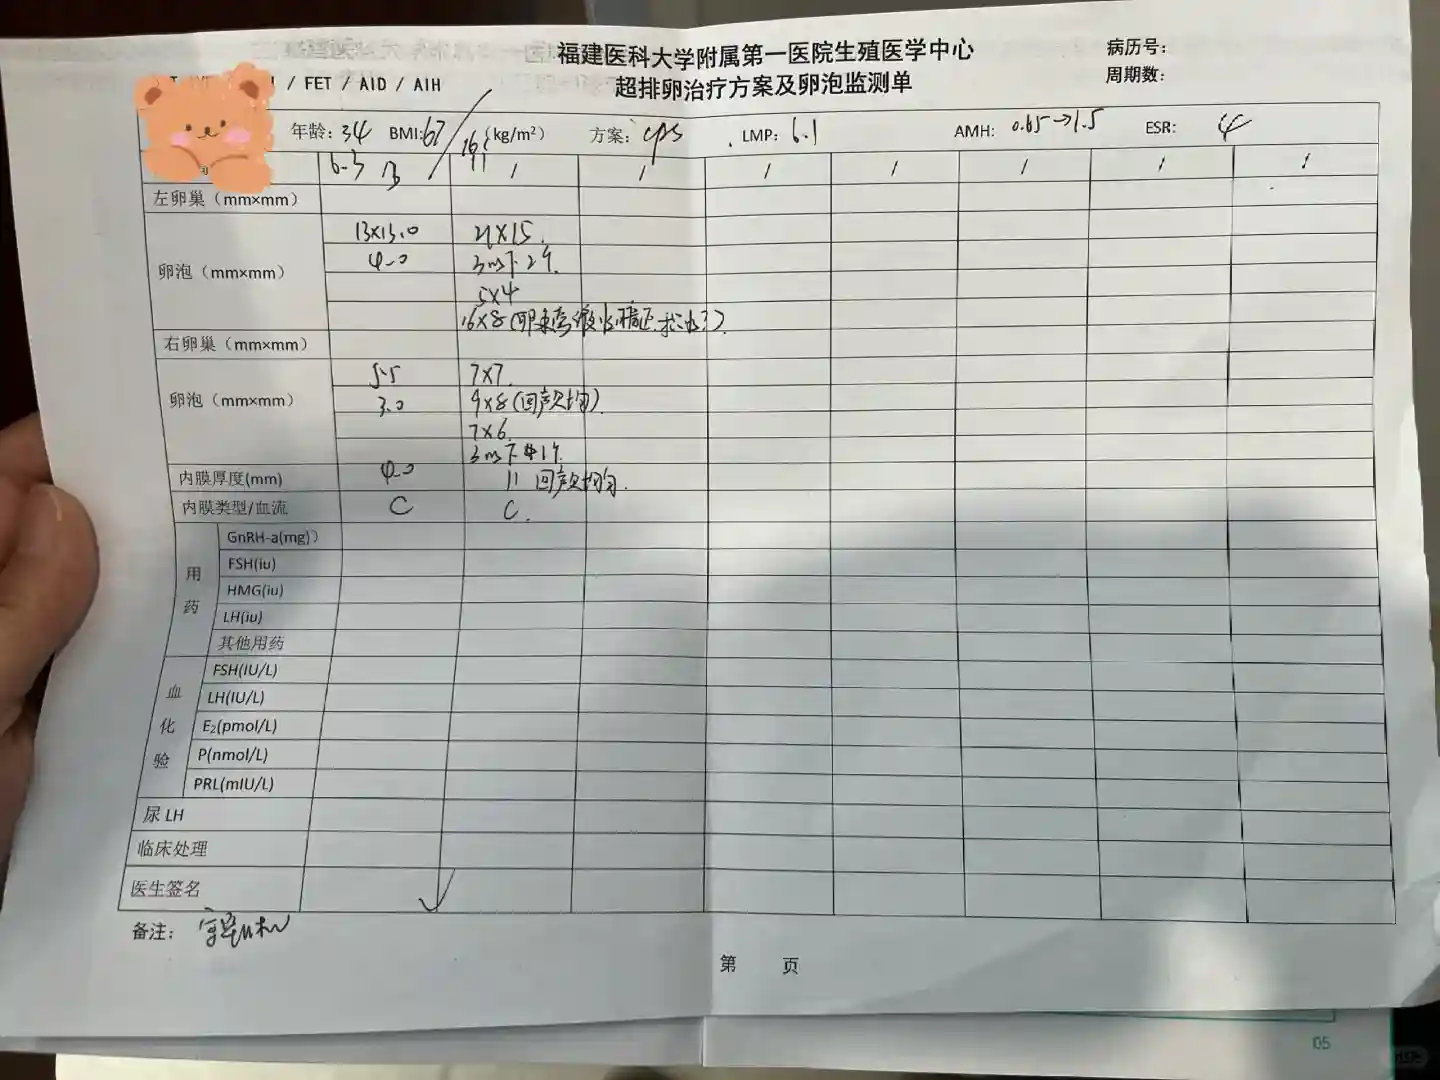 福建医科大学附属第一医院生殖医学中心
病历号:
/ FET / AID / AIH
超排卵治疗方案及卵泡监测单
周期数:
年龄: 34 BMI: 67/161 (kg/m²) 方案: LMP: 6.1 AMH: 0.65→1.5 ESR:
6.3 13 / / / / / / / /
左卵巢（mm×mm）
卵泡（mm×mm）
13×13.0 21×15.
4.0
5×4
16×8
右卵巢（mm×mm）
卵泡（mm×mm）
5.5 7×7.
3.0 9×8(回声欠均).
7×6.
内膜厚度(mm) 4.0 11 回声欠均匀.
内膜类型/血流 C C.
用药
GnRH-a(mg)）
FSH(iu)
HMG(iu)
LH(iu)
其他用药
血化验
FSH(IU/L)
LH(IU/L)
E₂(pmol/L)
P(nmol/L)
PRL(mIU/L)
尿 LH
临床处理
医生签名
备注:
第 页
05